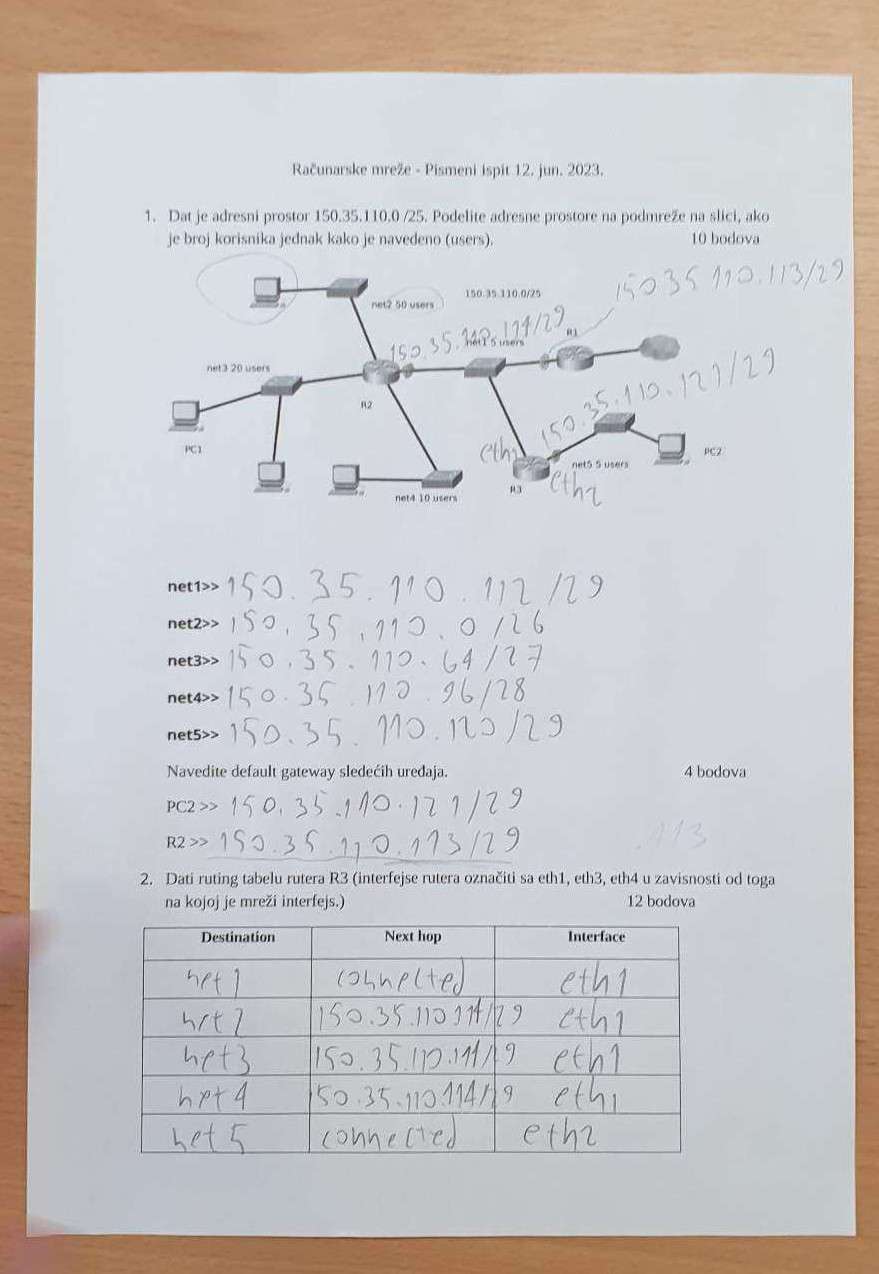 Računarske mreže - Pismeni ispit 12. jun. 2023.
1. Dat je adresni prostor 150.35.110.0 /25. Podelite adresne prostore na podmreže na slici, ako
je broj korisnika jednak kako je navedeno (users). 10 bodova
150 35 110.113/29
150.35.110.0/25
net2 50 users
150.35.110.114/29
net1 5 users
R1
net3 20 users
R2
150.35.110.121/29
PC1
eth1
PC2
net5 5 users
R3
eth2
net4 10 users
net1>> 150.35.110.112/29
net2>> 150.35.110.0/26
net3>> 150.35.110.64/27
net4>> 150.35.110.96/28
net5>> 150.35.110.120/29
Navedite default gateway sledećih uređaja. 4 bodova
PC2 >> 150.35.110.121/29
R2 >> 150.35.110.113/29 .113
2. Dati ruting tabelu rutera R3 (interfejse rutera označiti sa eth1, eth3, eth4 u zavisnosti od toga
na kojoj je mreži interfejs.) 12 bodova
Destination Next hop Interface
net1 connected eth1
net2 150.35.110.114/29 eth1
net3 150.35.110.114/29 eth1
net4 150.35.110.114/29 eth1
net5 connected eth2